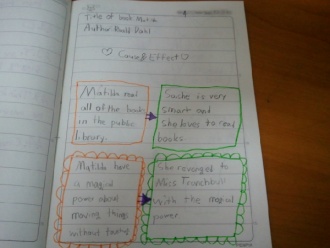 Title of book: Matilda
Author: Roald Dahl
Cause & Effect
Matilda read
all of the books
in the public
library.
Souche is very
smart and
she loves to read
books
Matilda have
a magical
power about
moving things
without touching
She revenged to
Miss Trunchbull
with the magical
power